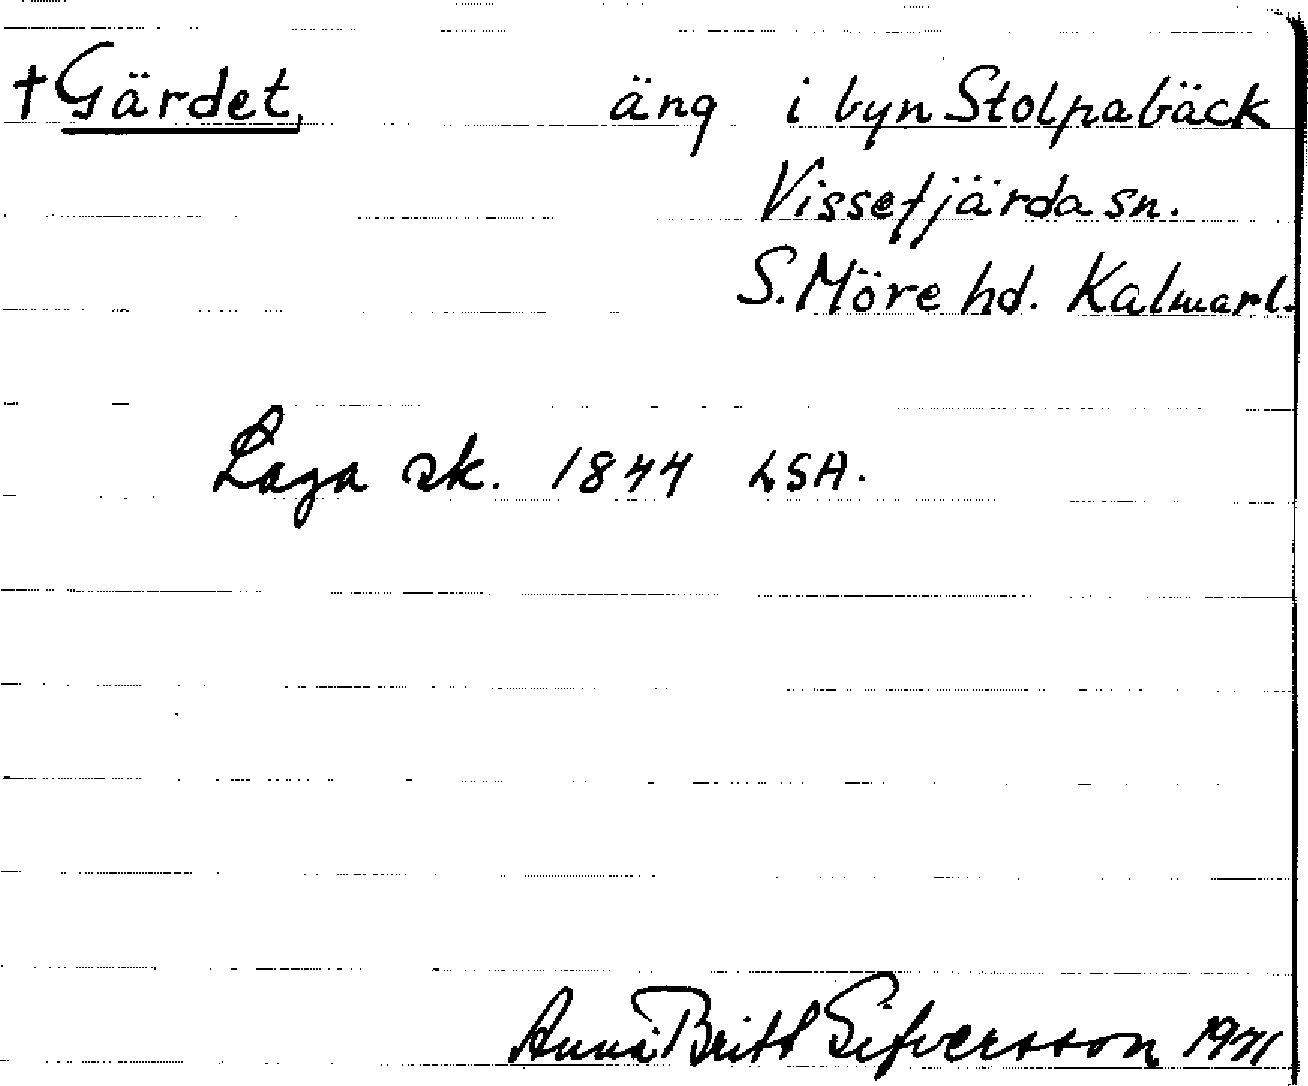 †Gärdet, äng i byn Stolpabäck
Vissefjärda sn.
S. Möre hd. Kalmarl.
Laga sk. 1844 LSA.
Anna Britt Sifversson 1971